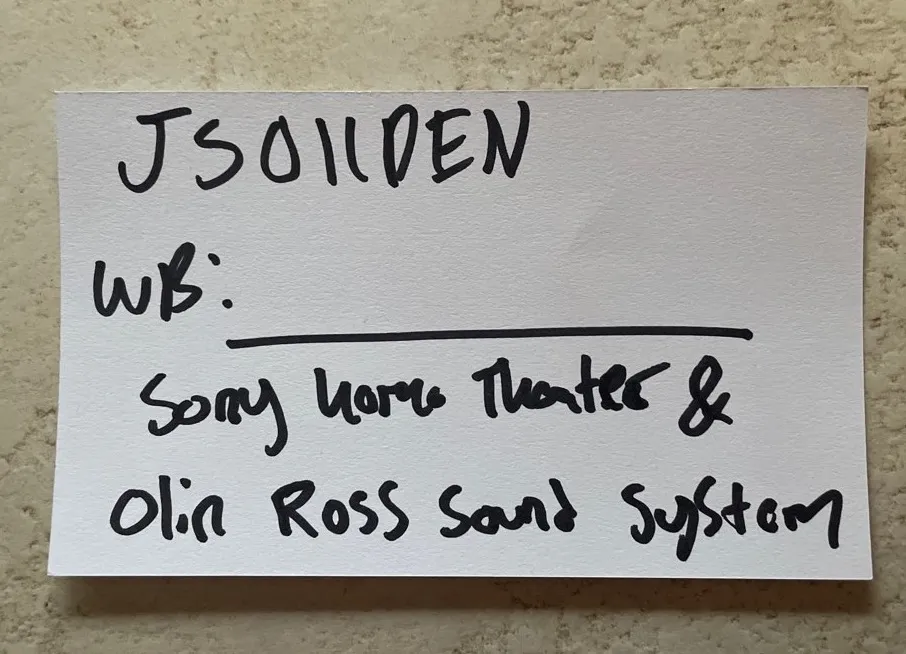 JSOllDEN
WB: 
Sony Home Theater &
Olin Ross Sound System